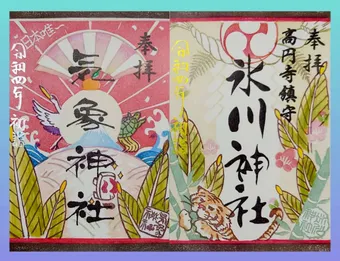 奉拝
気象神社
日本唯一
令和四年
奉拝
高円寺鎮守
氷川神社
令和四年